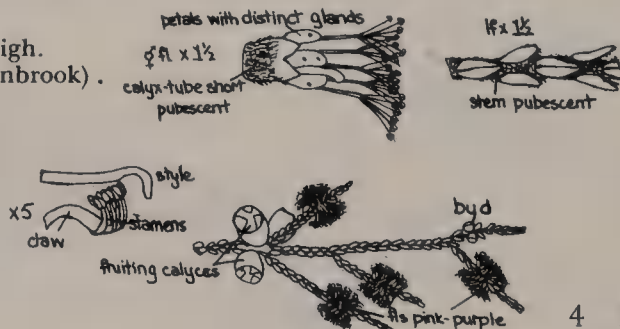 igh.
nbrook).
petals with distinct glands
⚥ fl x 1½
calyx-tube short
pubescent
lf x 1½
stem pubescent
x5
style
stamens
claw
fruiting calyces
byd
fls pink-purple
4